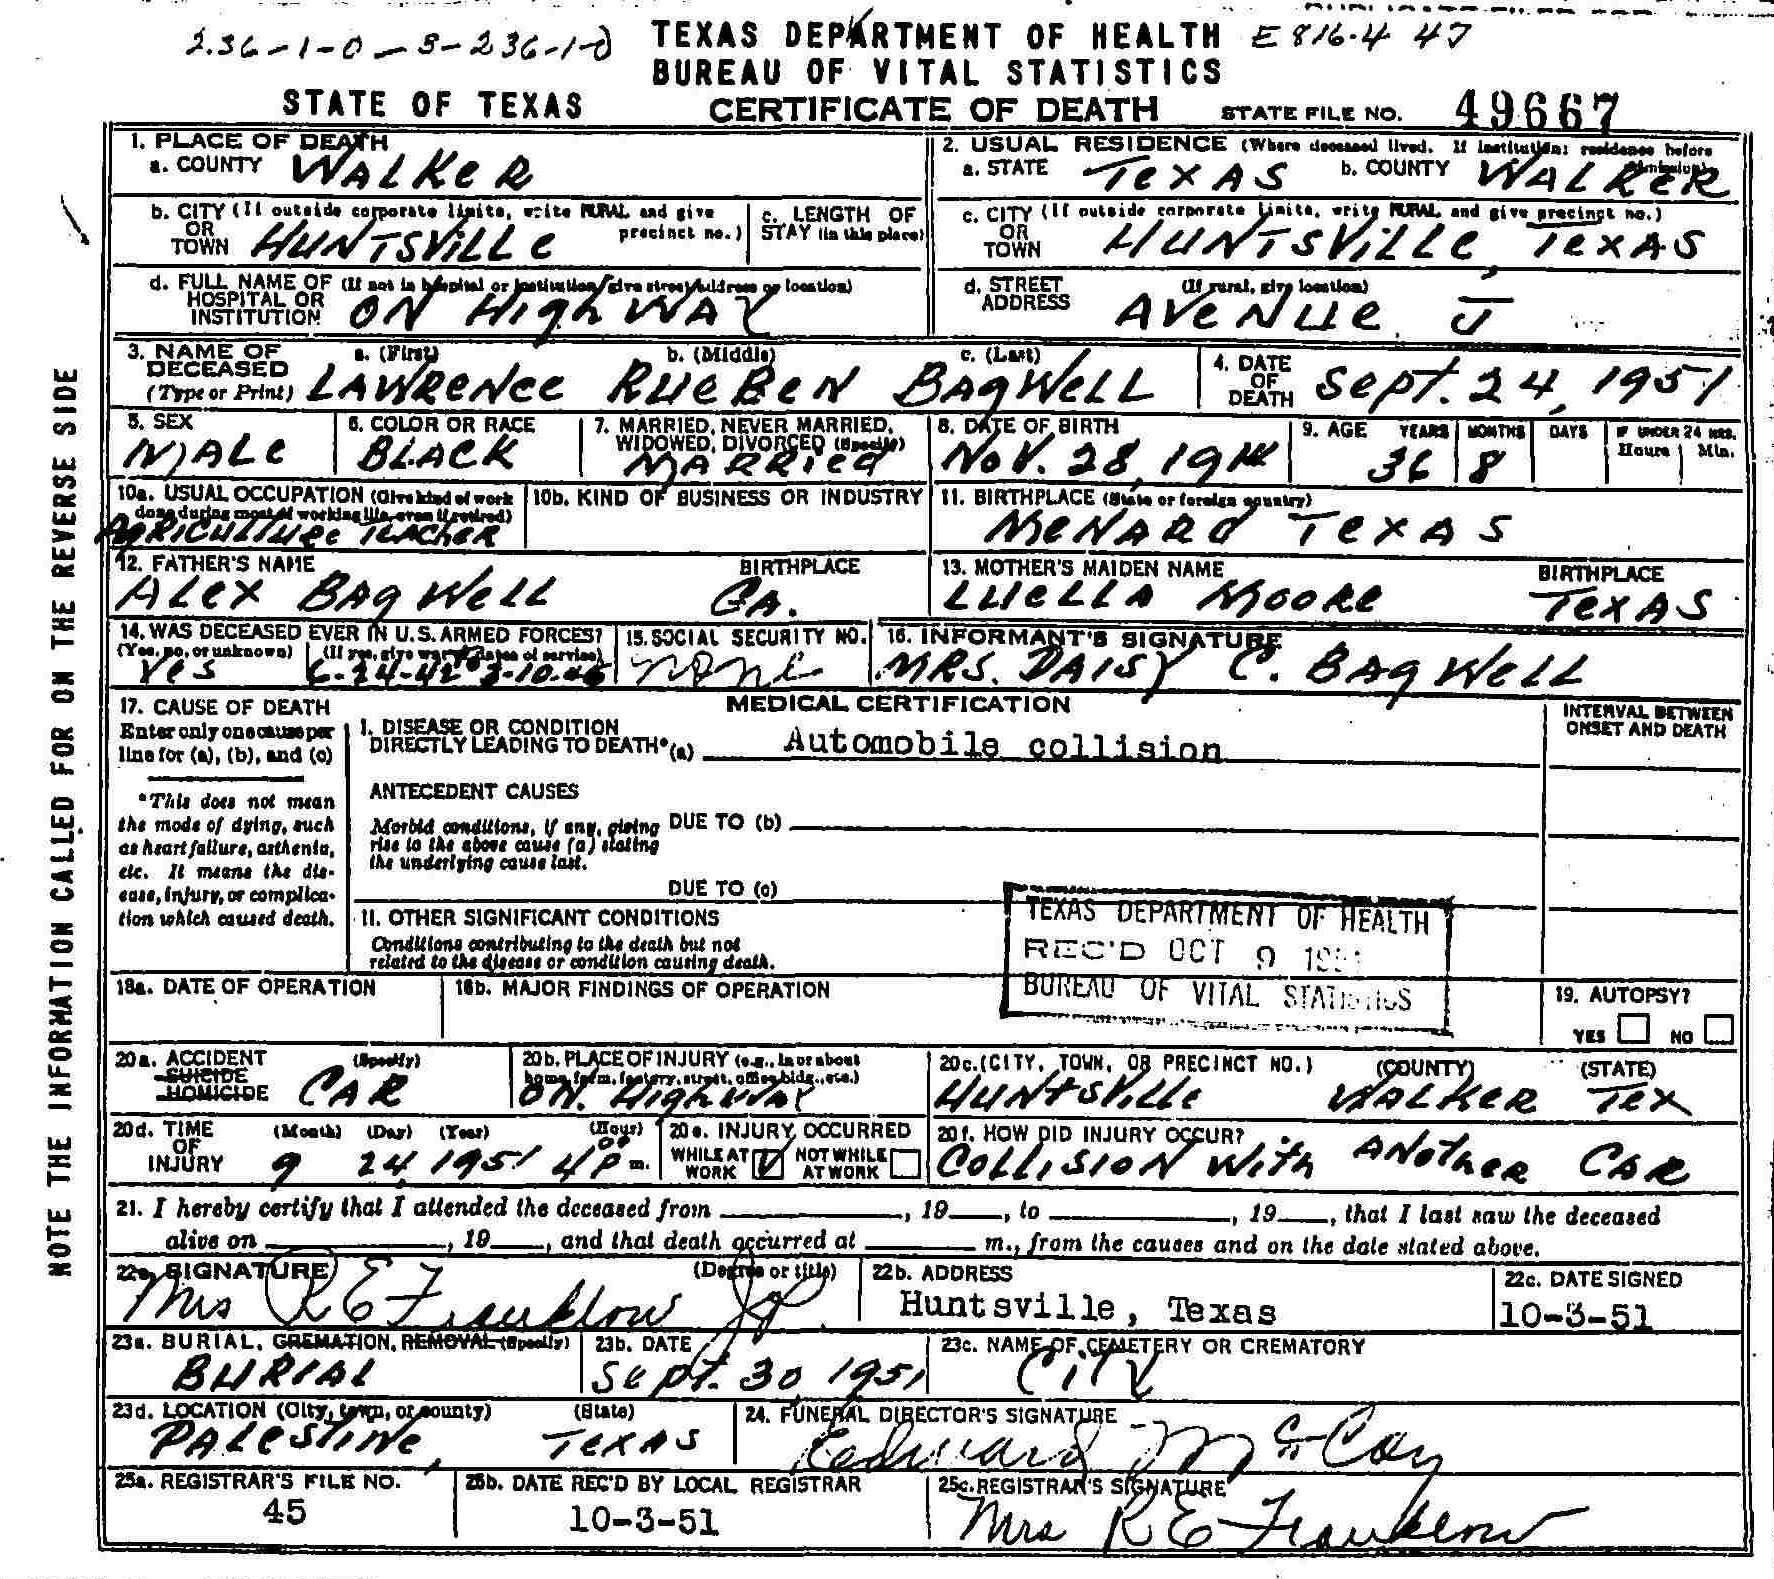 236-1-0-3-236-1-0 TEXAS DEPARTMENT OF HEALTH E 816.4 47
BUREAU OF VITAL STATISTICS
STATE OF TEXAS CERTIFICATE OF DEATH STATE FILE NO. 49667
1. PLACE OF DEATH
a. COUNTY WALKER
2. USUAL RESIDENCE (Where deceased lived. If institution: residence before admission)
a. STATE TEXAS b. COUNTY WALKER
b. CITY (If outside corporate limits, write RURAL and give precinct no.)
OR
TOWN HUNTSVILLE
c. LENGTH OF
STAY (in this place)
c. CITY (If outside corporate limits, write RURAL and give precinct no.)
OR
TOWN HUNTSVILLE, TEXAS
d. FULL NAME OF (If not in hospital or institution, give street address or location)
HOSPITAL OR
INSTITUTION ON HighWAY
d. STREET (If rural, give location)
ADDRESS AVENUE J
3. NAME OF DECEASED (Type or Print)
a. (First) b. (Middle) c. (Last)
LAWRENCE RUEBEN BAGWELL
4. DATE OF DEATH Sept. 24, 1951
5. SEX
MALE
6. COLOR OR RACE
BLACK
7. MARRIED, NEVER MARRIED,
WIDOWED, DIVORCED (Specify)
MARRIED
8. DATE OF BIRTH
NOV. 28, 1914
9. AGE YEARS MONTHS DAYS IF UNDER 24 HRS.
Hours Min.
36 8
10a. USUAL OCCUPATION (Give kind of work
done during most of working life, even if retired)
AGRICULTURE TEACHER
10b. KIND OF BUSINESS OR INDUSTRY
11. BIRTHPLACE (State or foreign country)
MENARD TEXAS
12. FATHER'S NAME BIRTHPLACE
ALEX BAGWELL GA.
13. MOTHER'S MAIDEN NAME BIRTHPLACE
LUELLA MOORE TEXAS
14. WAS DECEASED EVER IN U.S. ARMED FORCES?
(Yes, no, or unknown) (If yes, give war or dates of service)
Yes 6-24-42 3-10-46
15. SOCIAL SECURITY NO.
None
16. INFORMANT'S SIGNATURE
MRS. DAISY C. BAGWELL
17. CAUSE OF DEATH
Enter only one cause per
line for (a), (b), and (c)
*This does not mean
the mode of dying, such
as heart failure, asthenia,
etc. It means the dis-
ease, injury, or complica-
tion which caused death.
MEDICAL CERTIFICATION
INTERVAL BETWEEN
ONSET AND DEATH
I. DISEASE OR CONDITION
DIRECTLY LEADING TO DEATH* (a) Automobile collision
ANTECEDENT CAUSES
Morbid conditions, if any, giving
rise to the above cause (a) stating
the underlying cause last.
DUE TO (b)
DUE TO (c)
II. OTHER SIGNIFICANT CONDITIONS
Conditions contributing to the death but not
related to the disease or condition causing death.
TEXAS DEPARTMENT OF HEALTH
REC'D OCT 9 1951
BUREAU OF VITAL STATISTICS
18a. DATE OF OPERATION
18b. MAJOR FINDINGS OF OPERATION
19. AUTOPSY?
YES NO
20a. ACCIDENT (Specify)
SUICIDE
HOMICIDE CAR
20b. PLACE OF INJURY (e.g., in or about
home, farm, factory, street, office bldg., etc.)
ON HighWAY
20c. (CITY, TOWN, OR PRECINCT NO.) (COUNTY) (STATE)
HUNTSVILLE WALKER TEX
20d. TIME OF INJURY (Month) (Day) (Year) (Hour)
9 24, 1951 4 00 P m.
20e. INJURY OCCURRED
WHILE AT WORK NOT WHILE AT WORK
20f. HOW DID INJURY OCCUR?
COLLISION With ANOTHER CAR
21. I hereby certify that I attended the deceased from , 19 , to , 19 , that I last saw the deceased
alive on , 19 , and that death occurred at m., from the causes and on the date stated above.
22a. SIGNATURE (Degree or title)
Mrs R E Franklow JP.
22b. ADDRESS
Huntsville, Texas
22c. DATE SIGNED
10-3-51
23a. BURIAL, CREMATION, REMOVAL (Specify)
BURIAL
23b. DATE
Sept. 30, 1951
23c. NAME OF CEMETERY OR CREMATORY
CITY
23d. LOCATION (City, town, or county) (State)
PALESTINE, TEXAS
24. FUNERAL DIRECTOR'S SIGNATURE
Edward McCoy
25a. REGISTRAR'S FILE NO.
45
25b. DATE REC'D BY LOCAL REGISTRAR
10-3-51
25c. REGISTRAR'S SIGNATURE
Mrs R E Franklow
NOTE THE INFORMATION CALLED FOR ON THE REVERSE SIDE